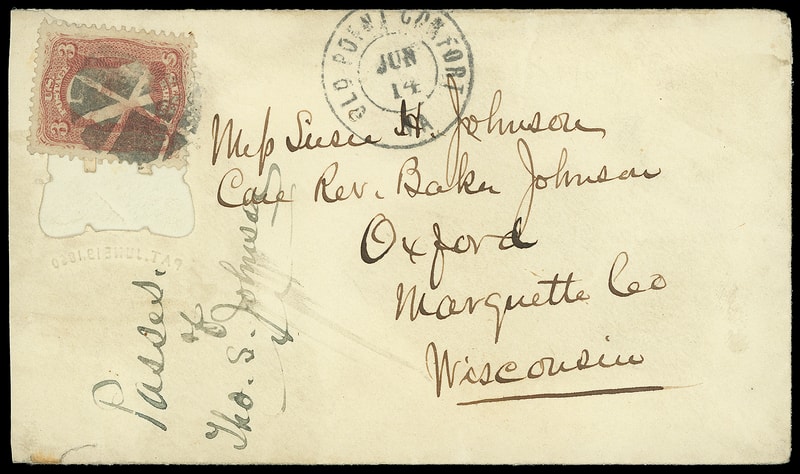 3 3
U.S.
OLD POINT COMFORT
JUN
14
VA
Miss Susie H. Johnson
Care Rev. Baker Johnson
Oxford
Marquette Co
Wisconsin
PAT. JUNE 19. 1860
Passes.
of
Tho. S. Johnson